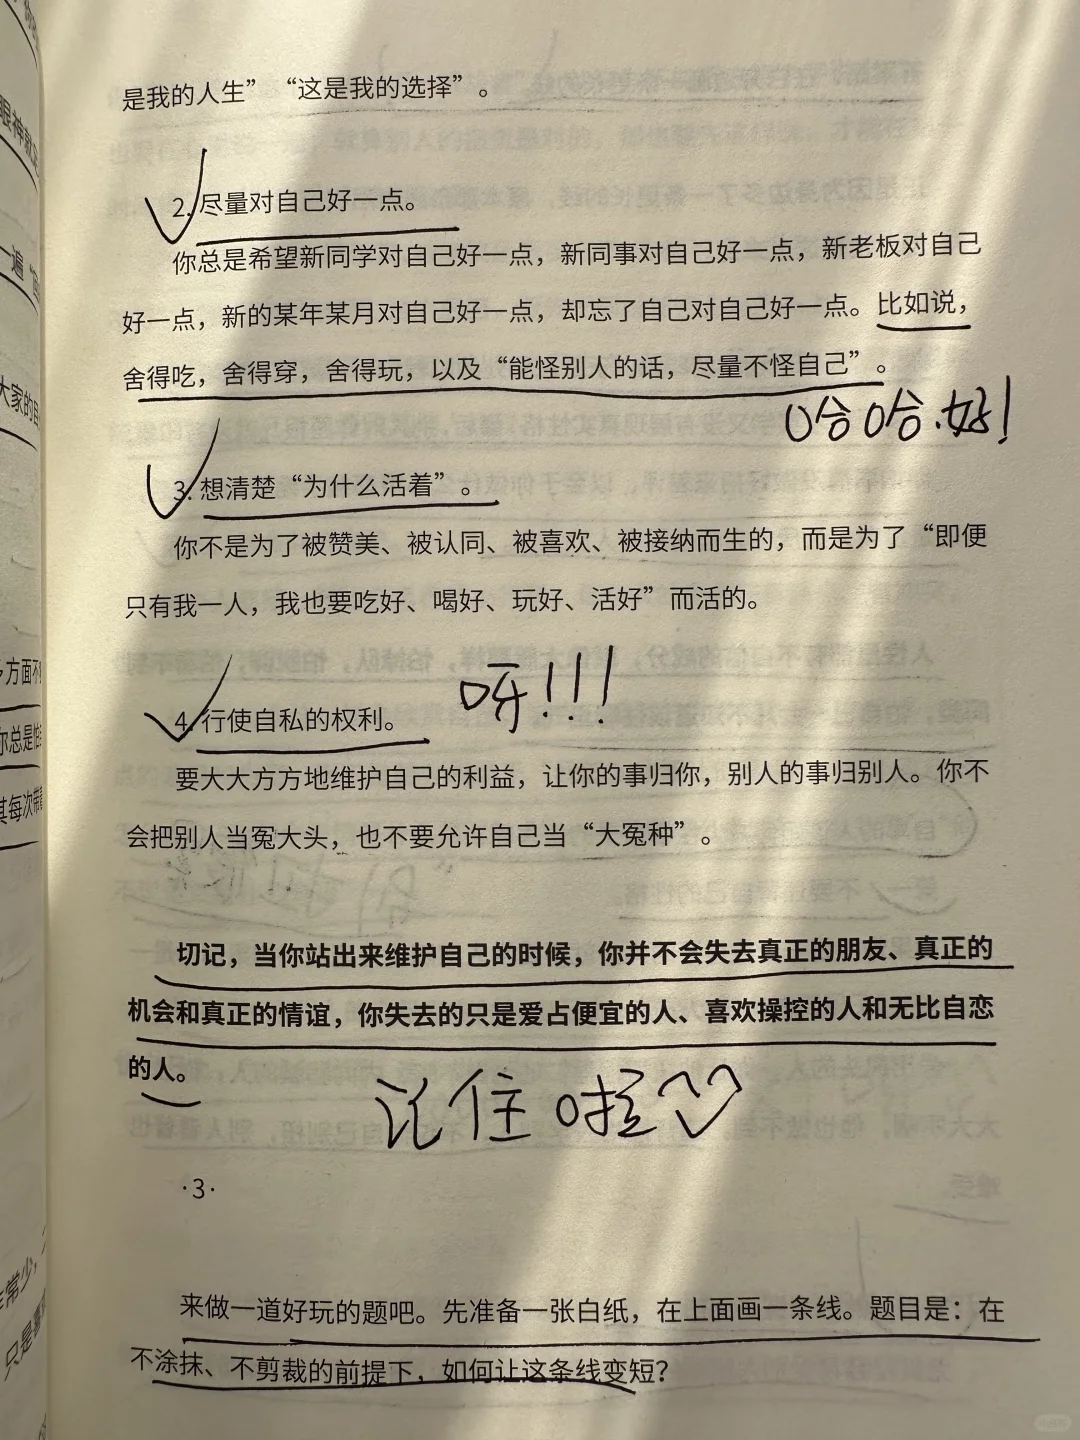 是我的人生”“这是我的选择”。
2. 尽量对自己好一点。
你总是希望新同学对自己好一点，新同事对自己好一点，新老板对自己
好一点，新的某年某月对自己好一点，却忘了自己对自己好一点。比如说，
舍得吃，舍得穿，舍得玩，以及“能怪别人的话，尽量不怪自己”。
哈哈.好!
3. 想清楚“为什么活着”。
你不是为了被赞美、被认同、被喜欢、被接纳而生的，而是为了“即便
只有我一人，我也要吃好、喝好、玩好、活好”而活的。
呀!!!
4. 行使自私的权利。
要大大方方地维护自己的利益，让你的事归你，别人的事归别人。你不
会把别人当冤大头，也不要允许自己当“大冤种”。
切记，当你站出来维护自己的时候，你并不会失去真正的朋友、真正的
机会和真正的情谊，你失去的只是爱占便宜的人、喜欢操控的人和无比自恋
的人。
记住啦
·3·
来做一道好玩的题吧。先准备一张白纸，在上面画一条线。题目是：在
不涂抹、不剪裁的前提下，如何让这条线变短？